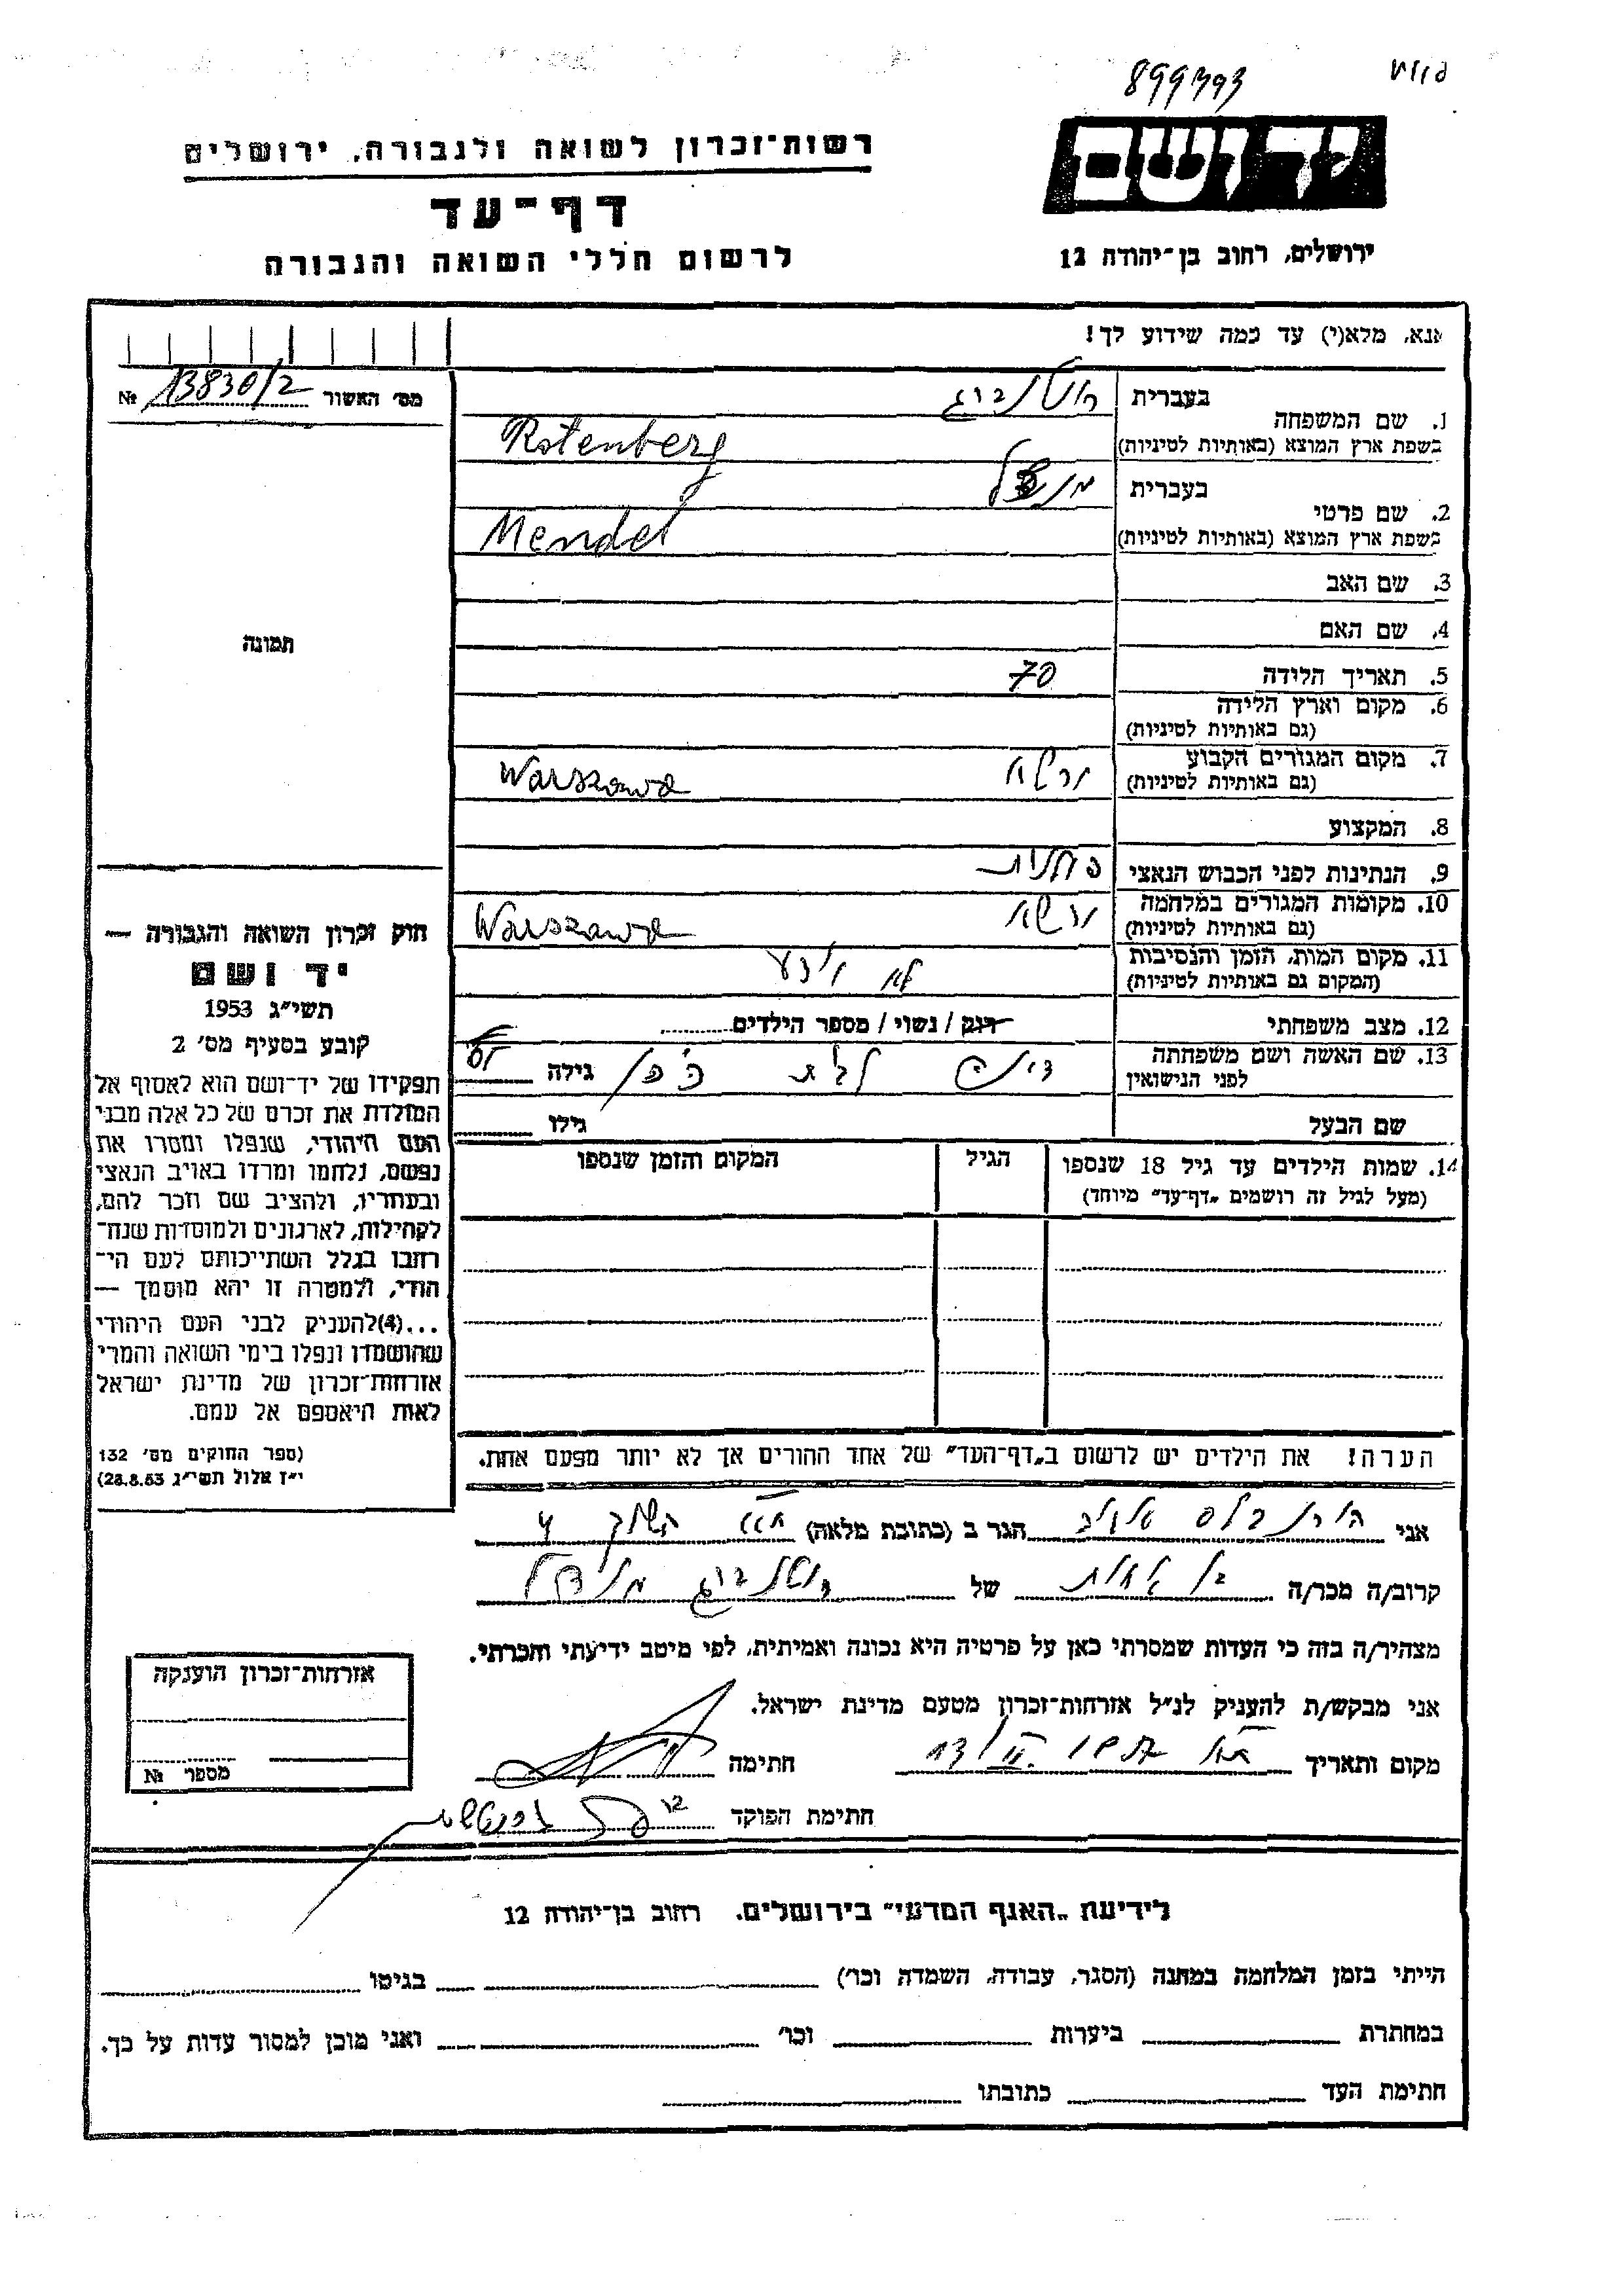 899393
רשות־זכרון לשואה ולגבורה, ירושלים
יד ושם
דף־עד
לרשום חללי השואה והגבורה
ירושלים, רחוב בן־יהודה 12
אנא, מלא(י) עד כמה שידוע לך!
מס׳ האשור 13830/2 №
1. שם המשפחה
בעברית רוטנברג
בשפת ארץ המוצא (באותיות לטיניות) Rotenberg
2. שם פרטי
בעברית
בשפת ארץ המוצא (באותיות לטיניות) Mendel
3. שם האב
4. שם האם
תמונה
5. תאריך הלידה 70
6. מקום וארץ הלידה
(גם באותיות לטיניות)
7. מקום המגורים הקבוע ורשא Warszawa
(גם באותיות לטיניות)
8. המקצוע
9. הנתינות לפני הכבוש הנאצי פולנית
10. מקומות המגורים במלחמה ורשא Warszawa
(גם באותיות לטיניות)
11. מקום המות, הזמן והנסיבות לא ידוע
(המקום גם באותיות לטיניות)
12. מצב משפחתי רווק / נשוי / מספר הילדים
13. שם האשה ושם משפחתה לבית גילה
לפני הנישואין
שם הבעל גילו
14. שמות הילדים עד גיל 18 שנספו הגיל המקום והזמן שנספו
(מעל לגיל זה רושמים „דף־עד״ מיוחד)
חוק זכרון השואה והגבורה —
יד ושם
תשי״ג 1953
קובע בסעיף מס׳ 2
תפקידו של יד־ושם הוא לאסוף אל
המולדת את זכרם של כל אלה מבני
העם היהודי, שנפלו ומסרו את
נפשם, נלחמו ומרדו באויב הנאצי
ובעוזריו, ולהציב שם וזכר להם,
לקהילות, לארגונים ולמוסדות שנח־
רבו בגלל השתייכותם לעם הי־
הודי, ולמטרה זו יהא מוסמך —
...(4)להעניק לבני העם היהודי
שהושמדו ונפלו בימי השואה והמרי
אזרחות־זכרון של מדינת ישראל
לאות היאספם אל עמם.
(ספר החוקים מס׳ 132
י״ז אלול תשי״ג 28.8.53)
הערה! את הילדים יש לרשום ב„דף־העד״ של אחד ההורים אך לא יותר מפעם אחת.
אני הגר ב (כתובת מלאה)
קרוב/ה מכר/ה של רוטנברג מנדל
מצהיר/ה בזה כי העדות שמסרתי כאן על פרטיה היא נכונה ואמיתית, לפי מיטב ידיעתי והכרתי.
אני מבקש/ת להעניק לנ״ל אזרחות־זכרון מטעם מדינת ישראל.
מקום ותאריך חתימה
חתימת הפוקד
אזרחות־זכרון הוענקה
מספר №
לידיעת „האגף המדעי״ בירושלים, רחוב בן־יהודה 12
הייתי בזמן המלחמה במחנה (הסגר, עבודה, השמדה וכו׳) בגיטו
במחתרת ביערות וכו׳ ואני מוכן למסור עדות על כך.
חתימת העד כתובתו